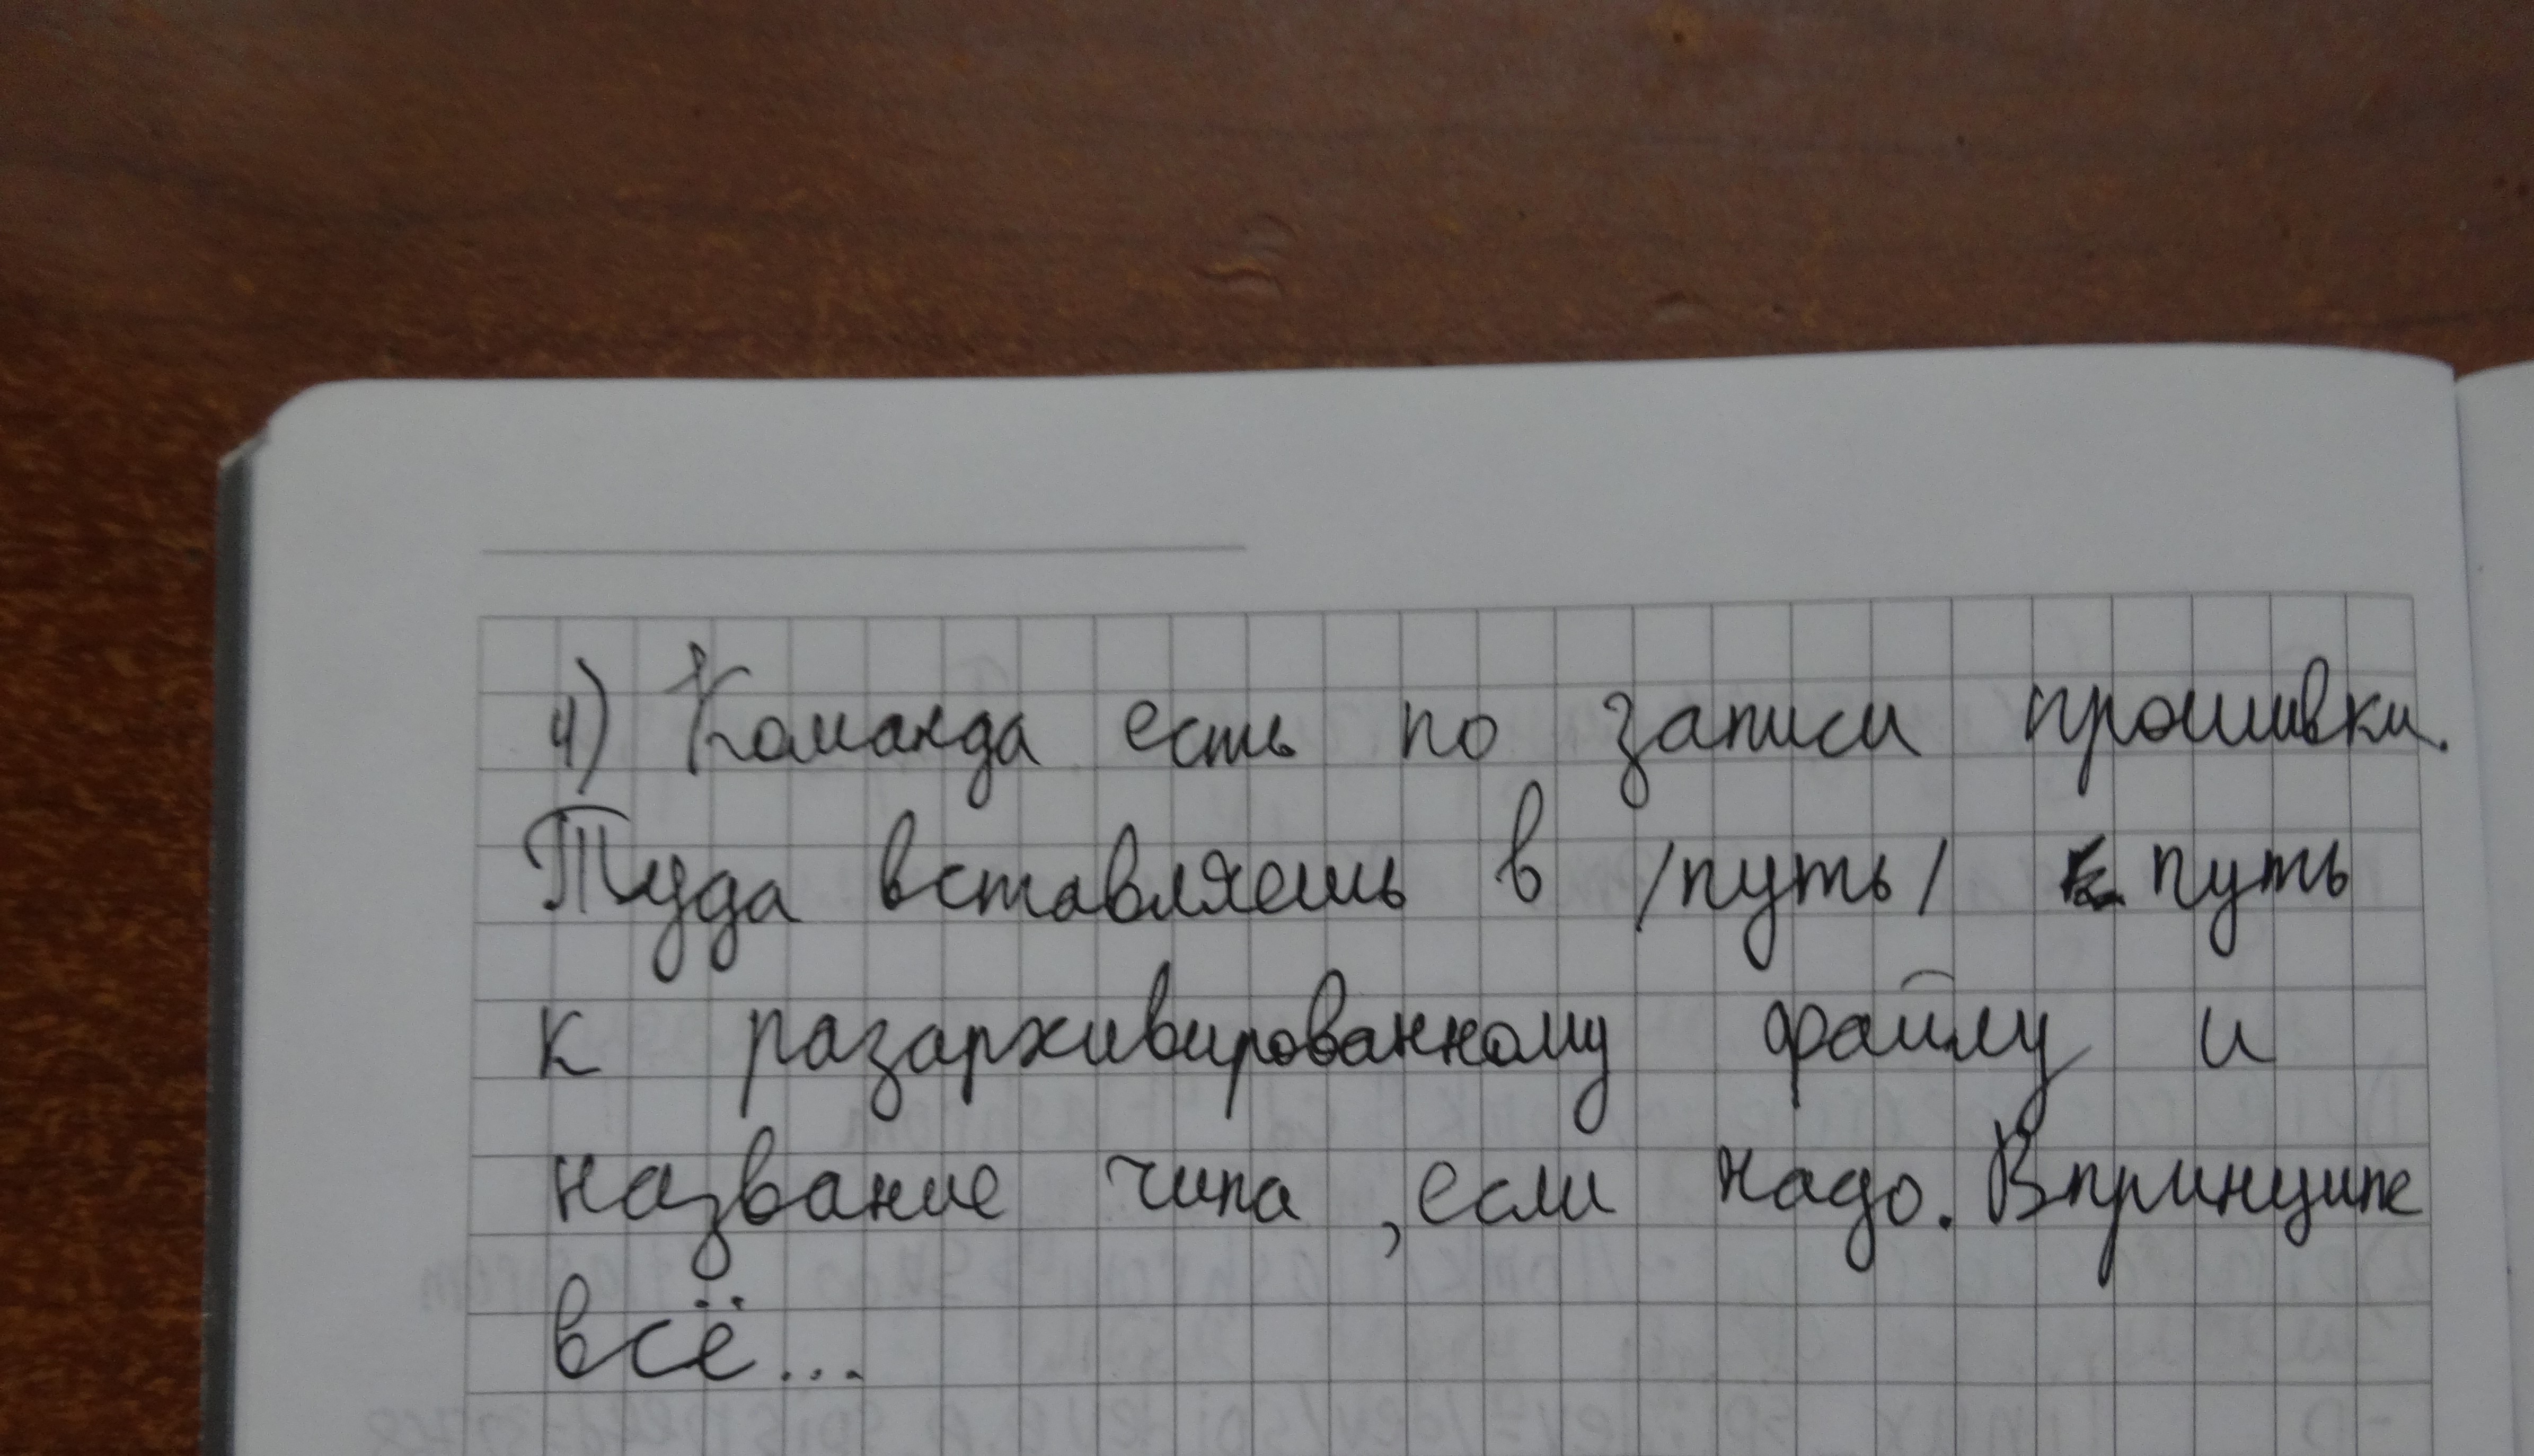 4) Команда есть по записи прошивки.
Туда вставляешь в /путь/ путь
к разархивированному файлу и
название чипа, если надо. Впринципе
всё...